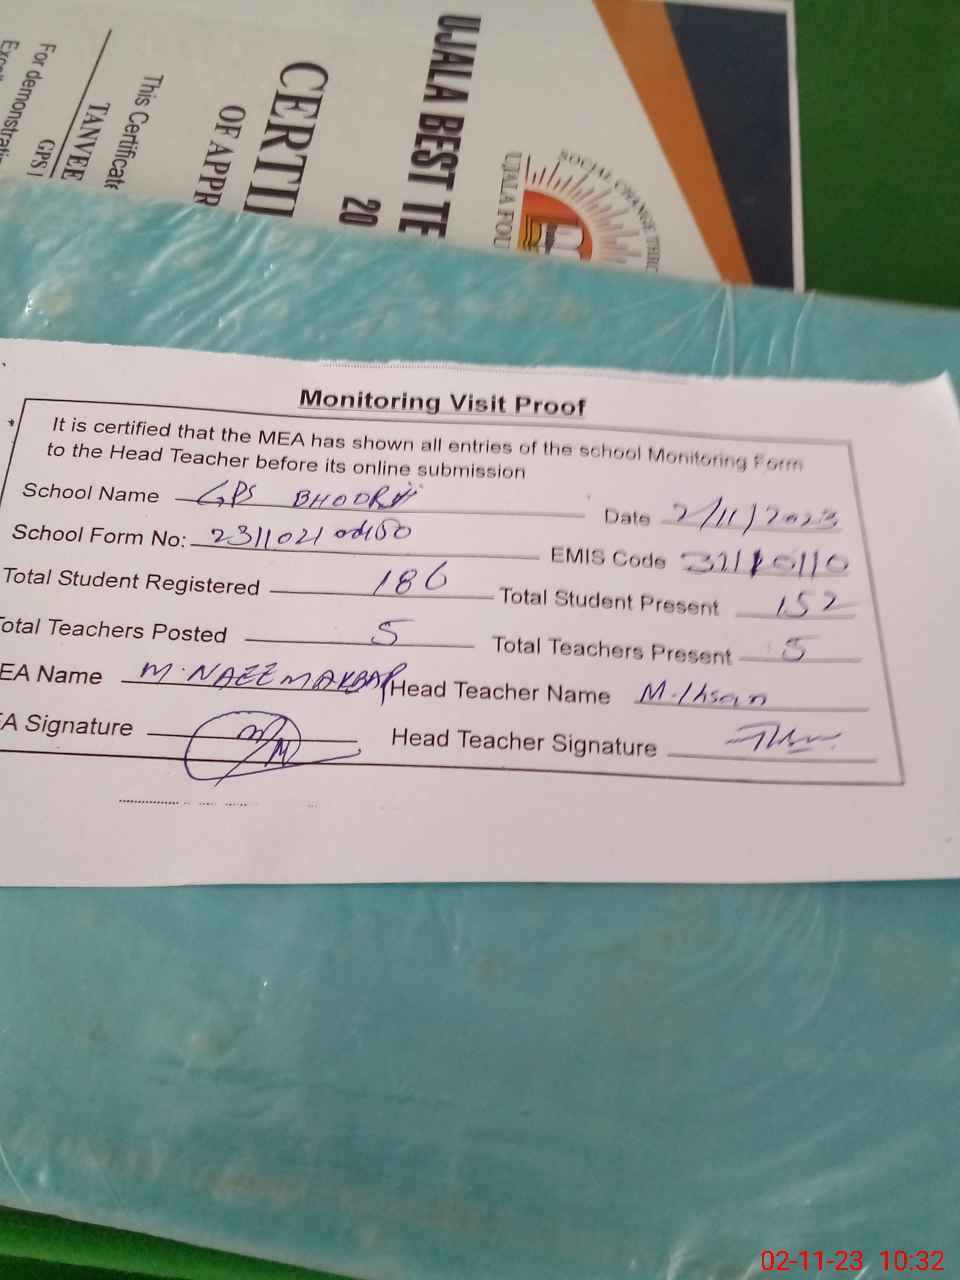 UJALA BEST TE
20
CERTI
OF APPR
This Certificate
TANVEE
GPS
For demonstrati
SOCIAL CHANGE THRO
UJALA FOU
Monitoring Visit Proof
It is certified that the MEA has shown all entries of the school Monitoring Form
to the Head Teacher before its online submission
School Name GPS Date 2/11/2023
School Form No: EMIS Code
Total Student Registered 186 Total Student Present 152
otal Teachers Posted 5 Total Teachers Present 5
EA Name M. NAEEM AKBAR Head Teacher Name M. Ihsan
A Signature Head Teacher Signature
02-11-23 10:32